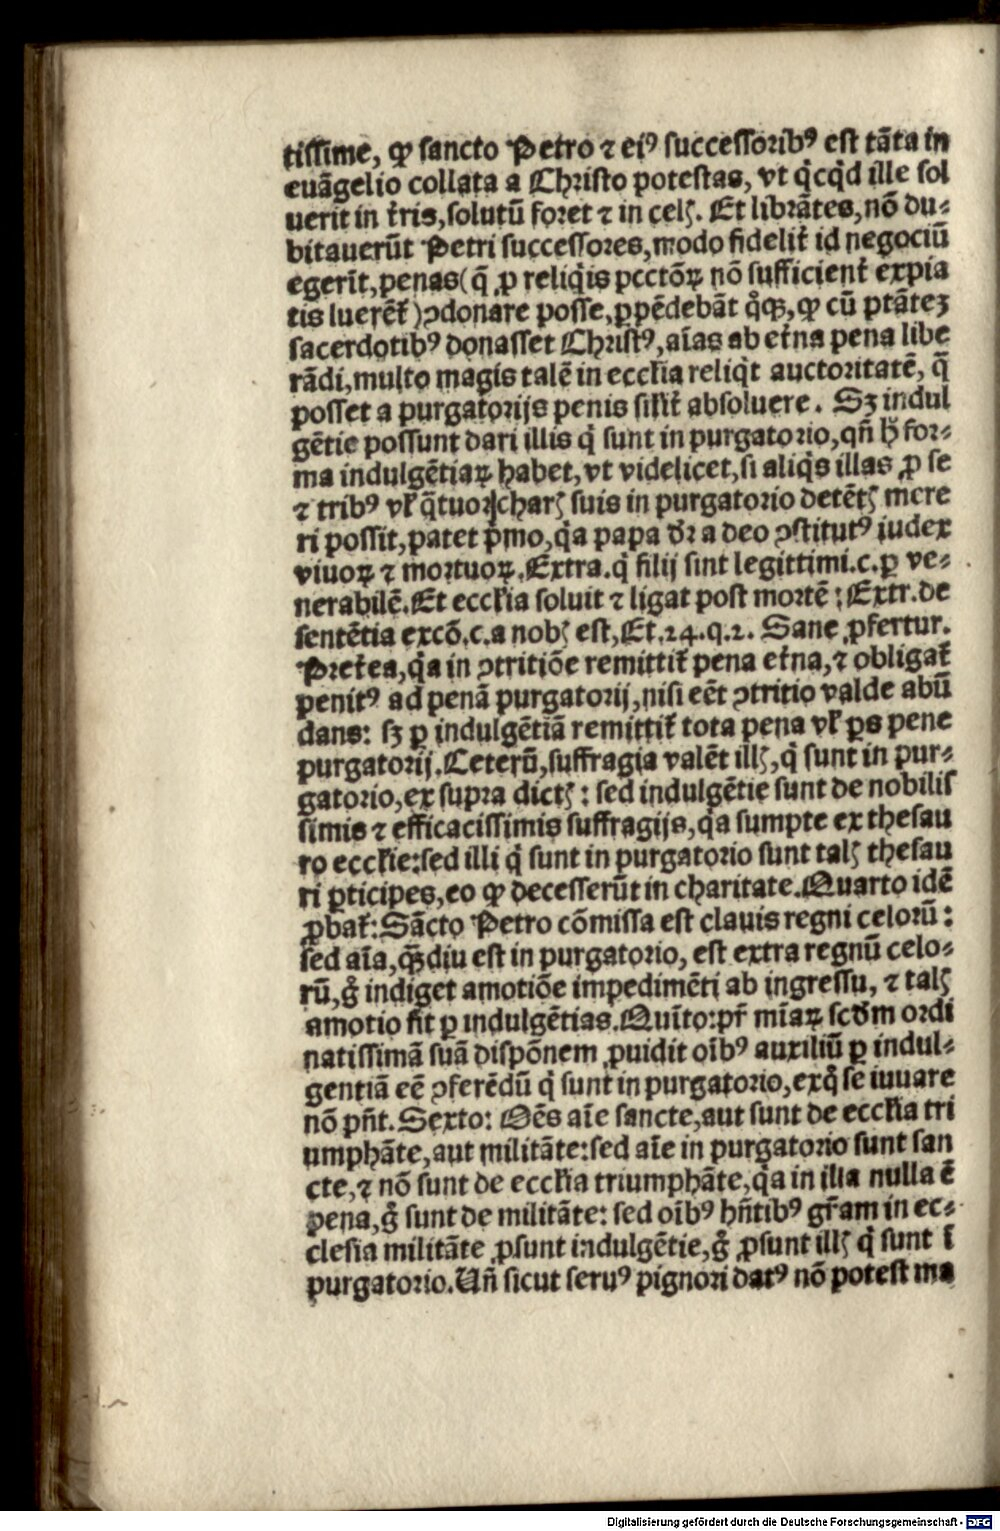 tissime, ꝙ sancto Petro ⁊ eiꝰ successoribꝰ est tãta in
euãgelio collata a Christo potestas, vt q̇cq̇d ille sol
uerit in t̃ris, solutũ foret ⁊ in celꝭ. Et librãtes, nõ du⸗
bitauerũt Petri successores, modo fidelit̃ id negociũ
egerĩt, penas (q̃ ꝓ reliq̇is pcctõꝝ nõ sufficient̃ expia
tis luerẽt̃) ↄdonare posse, ꝑpẽdebãt q̇ꝗꝫ, ꝙ cũ ptãteꝫ
sacerdotibꝰ donasset Christꝰ, aĩas ab et̃na pena libe
rãdi, multo magis talẽ in eccƚia reliq̇t auctoritatẽ, q̃
posset a purgatorijs penis siƚit̃ absoluere. Sꝫ indul
gẽtie possunt dari illis q̇ sunt in purgatorio, qñ h̃ for⸗
ma indulgẽtiaꝝ habet, vt videlicet, si aliq̇s illas ꝓ se
⁊ tribꝰ vƚ q̃tuor charꝭ suis in purgatorio detẽtꝭ mere
ri possit, patet p̃mo, q̇a papa d̃r a deo ↄstitutꝰ iudex
viuoꝝ ⁊ mortuoꝝ. Extra. q̇ filij sint legittimi. c. ꝑ ve⸗
nerabilẽ. Et eccƚia soluit ⁊ ligat post mortẽ: Extr. de
sentẽtia excõ. c. a nobꝭ est, Et. 24. q. 2. Sane ꝓfertur.
Pret̃ea, q̇a in ↄtritiõe remittit̃ pena et̃na, ⁊ obligat̃
penitꝰ ad penã purgatorij, nisi eẽt ↄtritio valde abũ
dans: sꝫ ꝑ indulgẽtiã remittit̃ tota pena vƚ ꝑs pene
purgatorij. Ceterũ, suffragia valẽt illꝭ, q̇ sunt in pur⸗
gatorio, ex supra dictꝭ: sed indulgẽtie sunt de nobilis
simis ⁊ efficacissimis suffragijs, q̇a sumpte ex thesau
ro eccƚie: sed illi q̇ sunt in purgatorio sunt talꝭ thesau
ri ꝑticipes, eo ꝙ decesserũt in charitate. Quarto idẽ
ꝓbat̃: Sãcto Petro cõmissa est clauis regni celorũ:
sed aĩa, ꝗꝫdiu est in purgatorio, est extra regnũ celo⸗
rũ, g̊ indiget amotiõe impedimẽti ab ingressu, ⁊ talꝭ
amotio fit ꝑ indulgẽtias. Quĩto: pr̃ mĩaꝝ scd̃m ordi
natissimã suã dispõnem ꝓuidit oĩbꝰ auxiliũ ꝑ indul⸗
gentiã eẽ ↄferẽdũ q̇ sunt in purgatorio, ex q̊ se iuuare
nõ pñt. Sexto: Oẽs aĩe sancte, aut sunt de eccƚia tri
umphãte, aut militãte: sed aĩe in purgatorio sunt san
cte, ⁊ nõ sunt de eccƚia triumphãte, q̇a in illa nulla ẽ
pena, g̊ sunt de militãte: sed oĩbꝰ hñtibꝰ gr̃am in ec⸗
clesia militãte ꝓsunt indulgẽtie, g̊ ꝓsunt illꝭ q̇ sunt ĩ
purgatorio. Vñ sicut seruꝰ pignori datꝰ nõ potest ma
Digitalisierung gefördert durch die Deutsche Forschungsgemeinschaft - DFG